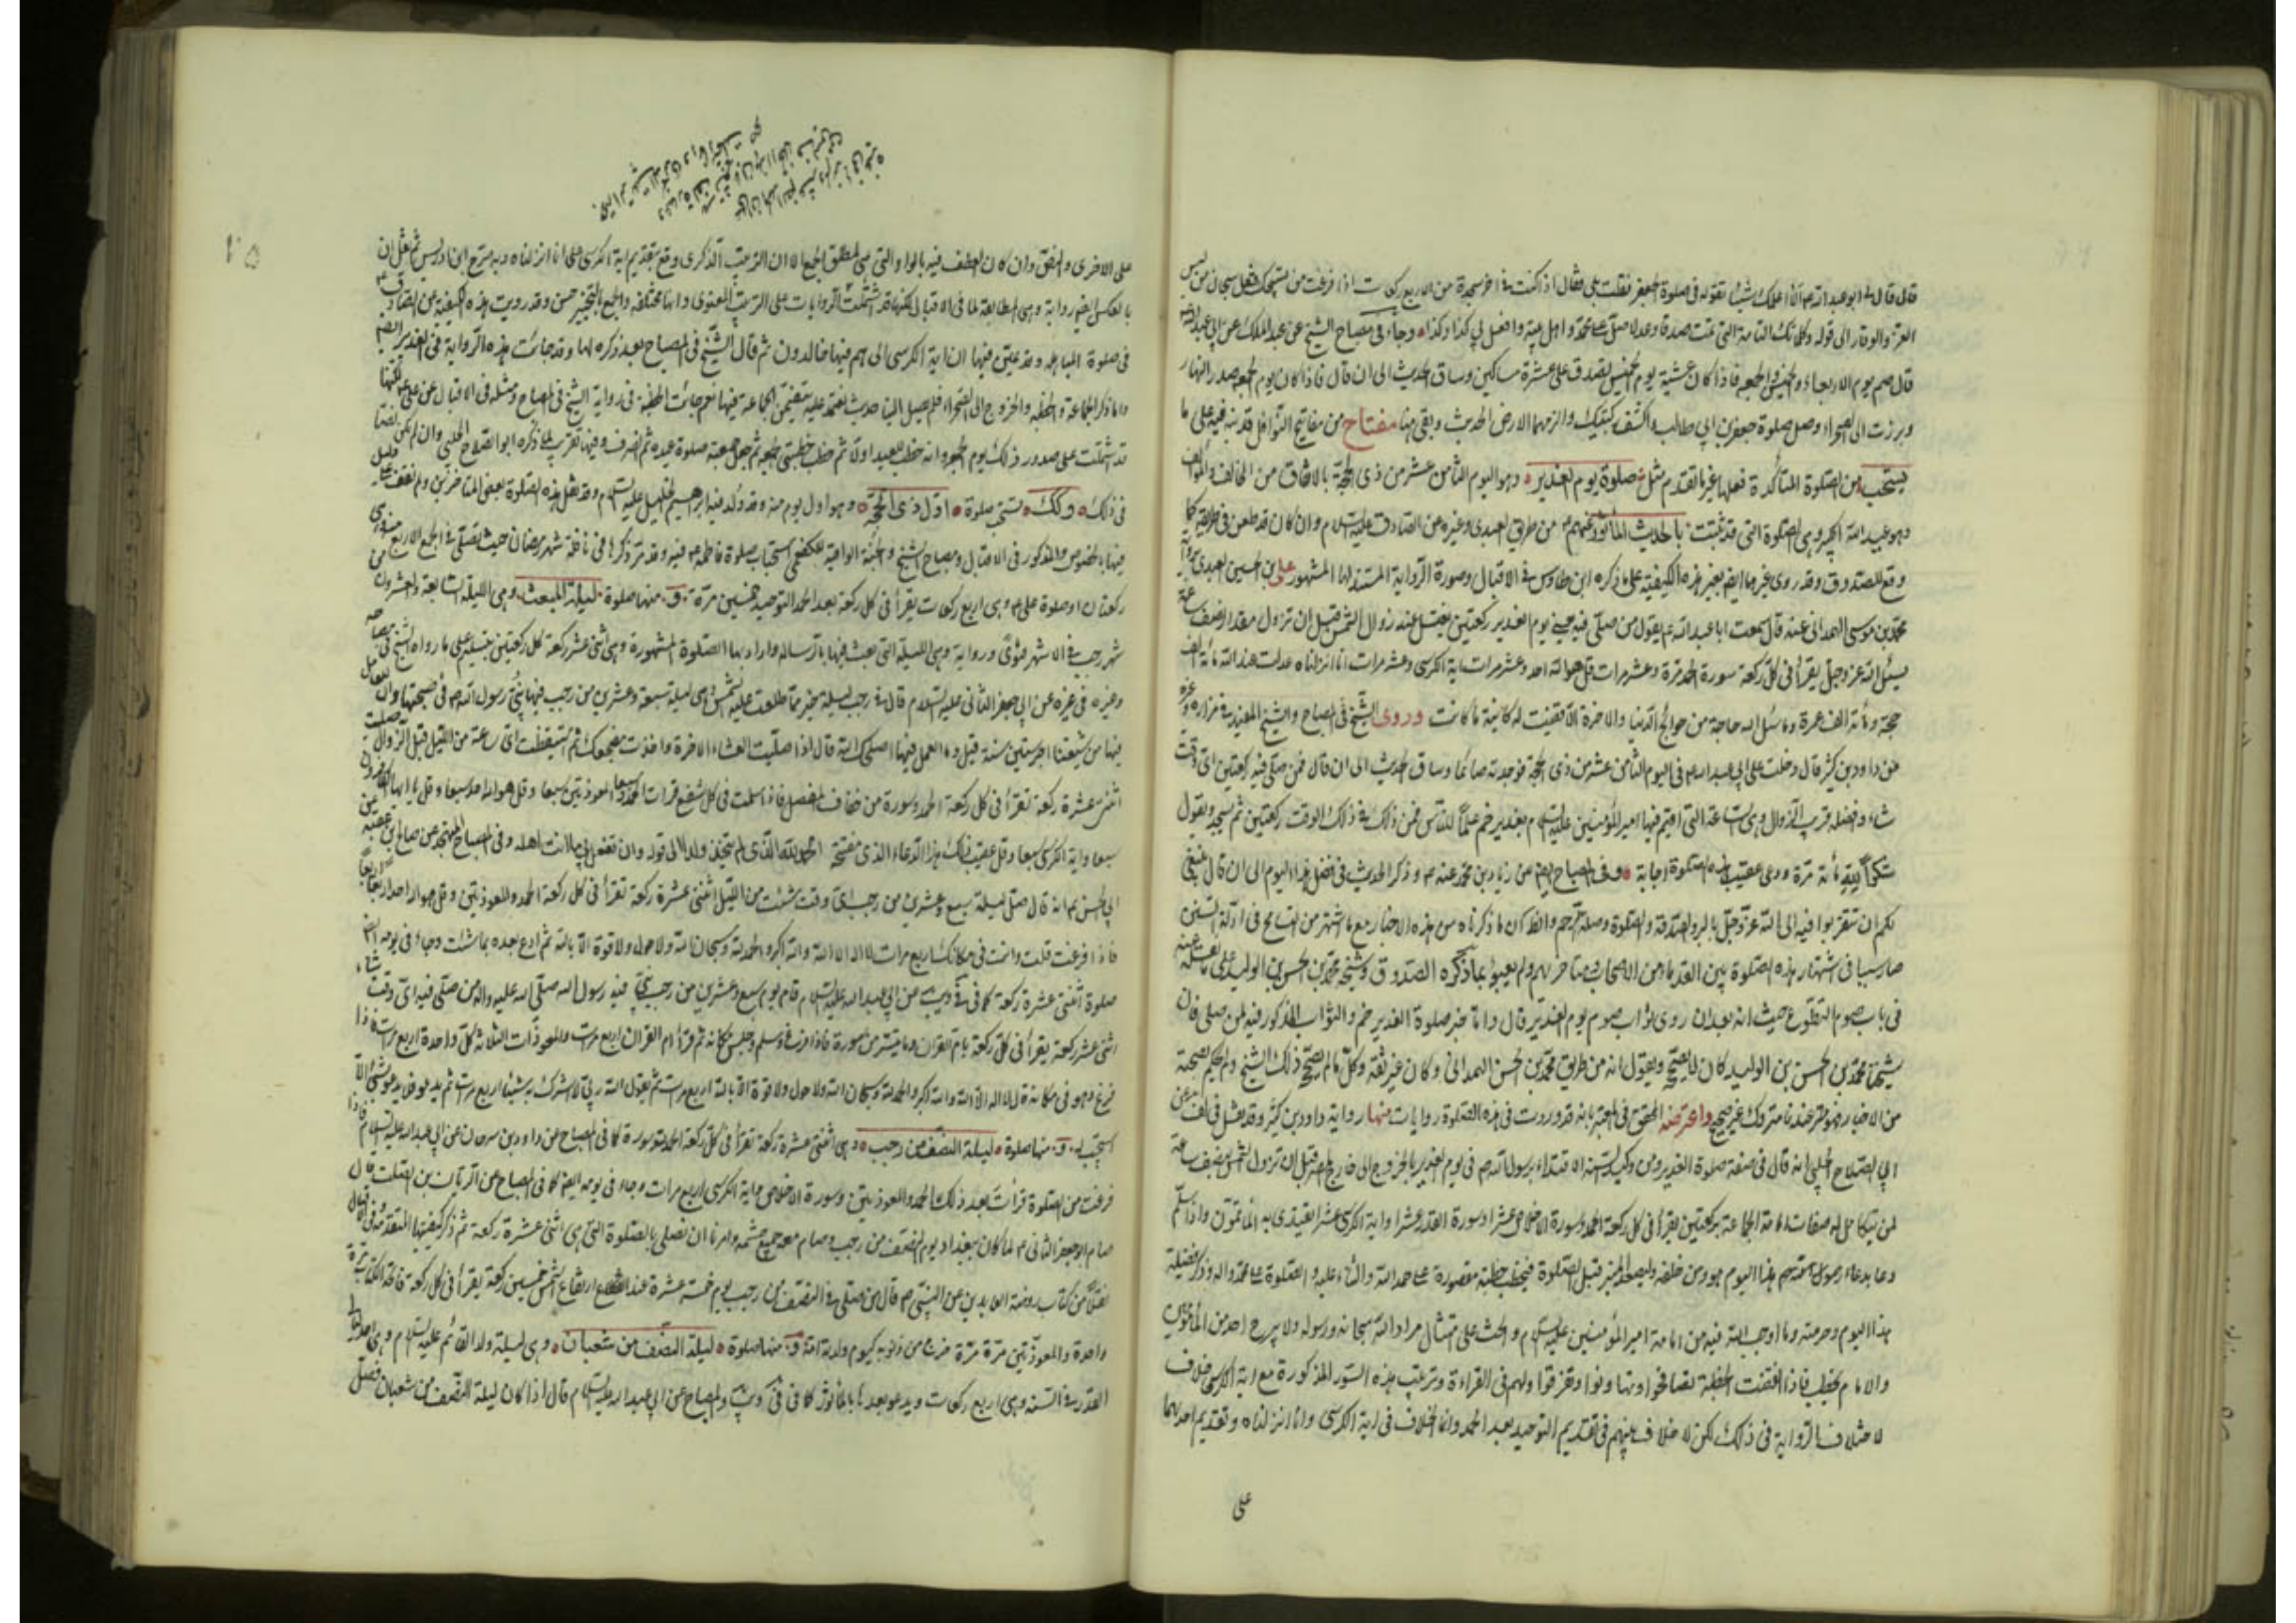 قال قال لي ابو عبد الله ع الا اعلمك شيئا تقوله في صلوة جعفر فقلت بلى فقال اذا كنت في اخر سجدة من الاربع ركعات اذا فرغت من تسبيحك فقل سبحان من لبس
العز والوقار الى قوله وكلماتك التامة التي تمت صدقا وعدلا صل على محمد واهل بيته وافعل لي كذا وكذا وجاء في مصباح الشيخ عن عبد الملك عن ابي عبد الله
قال صم يوم الاربعاء والخميس والجمعه فاذا كان عشية يوم الخميس تصدق على عشرة مساكين وساق الحديث الى ان قال فاذا كان يوم الجمعه صدر النهار
وبرزت الى الصحراء وصل صلوة جعفر بن ابي طالب واكشف ركبتيك والزمهما الارض الحديث وبقي هنا مفتاح من مفاتيح النوافل قد نبه فيه على ما
يستحب من الصلوة المتأكدة فعلها غير ما تقدم مثل صلوة يوم الغدير وهو اليوم الثامن عشر من ذي الحجة بالاتفاق من المخالف والمؤالف
وهو عيد الله الاكبر وهي الصلوة التي قد ثبتت بالاحاديث المأثورة عنهم ع من طريق العبدي وغيره عن الصادق عليه السلام وان كان قد طعن في طريقه كما
وقع للصدوق وقد روي غيرها ايضا بغير هذه الكيفية على ما ذكره ابن طاوس في الاقبال وصورة الرواية المستند لها المشهور علي بن الحسين العبدي
محمد بن موسى الهمداني عنه قال سمعت ابا عبد الله ع يقول من صلى فيه يعني يوم الغدير ركعتين يغتسل عند زوال الشمس قبل ان تزول مقدار نصف ساعة
يسئل الله عز وجل يقرأ في كل ركعة سورة الحمد مرة وعشر مرات قل هو الله احد وعشر مرات اية الكرسي وعشر مرات انا انزلناه عدلت عند الله مائة الف
حجة ومائة الف عمرة وما سئل الله حاجة من حوائج الدنيا والاخرة الا قضيت له كائنة ما كانت وروى الشيخ في المصباح والشيخ المفيد في مزاره وغيره
عن داود بن كثير قال دخلت على ابي عبد الله ع في اليوم الثامن عشر من ذي الحجة فوجدته صائما وساق الحديث الى ان قال فمن صلى فيه ركعتين اي وقت
شاء وافضله قرب الزوال وهي الساعة التي اقيم فيها امير المؤمنين عليه السلام بغدير خم علما للناس فمن ذلك في ذلك الوقت ركعتين ثم سجد ويقول
شكرا لله مائة مرة ودعى عقيب هذه الصلوة اجابة وفي المصباح ايضا عن زياد بن محمد عنه ع وذكر الحديث في فضل هذا اليوم الى ان قال ينبغي
لكم ان تتقربوا فيه الى الله عز وجل بالبر والصدقة والصلوة وصلة الرحم والظ ان ما ذكرناه من هذه الاخبار مع ما اشتهر من التسامح في ادلة السنن
صار سببا في اشتهار هذه الصلوة بين القدماء من الاصحاب ومتأخريهم ولم يعبؤا بما ذكره الصدوق وشيخه محمد بن الحسن بن الوليد على ما نقله عنه
في باب صوم التطوع حيث انه بعد ان روى ثواب صوم يوم الغدير قال واما خبر صلوة الغدير خم والثواب المذكور فيه لمن صلى فان
شيخنا محمد بن الحسن بن الوليد كان لا يصححه ويقول انه من طريق محمد بن الحسن الهمداني وكان غير ثقة وكل ما لم يصححه ذلك الشيخ ولم يحكم بصحته
من الاخبار فهو عندنا متروك غير صحيح واعترضه المحقق في المعتبر بانه قد وردت في هذه الصلوة روايات منها رواية داود بن كثير وقد نقل في المختلف عن
ابي الصلاح الحلبي انه قال في صفة صلوة الغدير ومن وكيد السنة الاقتداء برسول الله ص في يوم الغدير بالخروج الى خارج المصر قبل ان تزول الشمس بنصف ساعة
لمن يتكامل له صفات امامة الجماعة بركعتين يقرأ في كل ركعة الحمد وسورة الاخلاص عشرا وسورة القدر عشرا واية الكرسي عشرا يقتدي به المأتمون واذا سلم
دعا بدعاء رسول الله ص هذا اليوم هو ومن خلفه وليصعد المنبر قبل الصلوة فيخطب خطبة مقصورة على حمد الله والثناء عليه والصلوة على محمد واله وذكر فضيلة
هذا اليوم وحرمته وما اوجب الله فيه من امامة امير المؤمنين عليه السلام والحث على امتثال مراد الله سبحانه ورسوله ولا يبرح احد من المأمومين
والامام يخطب فاذا انقضت الخطبة تصافحوا وتهانوا وتفرقوا ولهم في القراءة وترتيب هذه السور المذكورة مع اية الكرسي خلاف
لاختلاف الرواية في ذلك لكن لا خلاف بينهم في تقديم التوحيد بعد الحمد وانما الخلاف في اية الكرسي وانا انزلناه وتقديم احدهما
على
٢٥
على الاخرى والنص وان كان العطف فيه بالواو التي هي لمطلق الجمع الا ان الترتيب الذكري وقع بتقديم اية الكرسي على انا انزلناه وبه صرح ابن ادريس ثم نقل ان
بالعكس ايضا رواية وهي المطابقة لما في الاقبال لكنها قد اشتملت الروايات على الترتيب المعنوي وانها مختلفه والجمع بالتخيير حسن وقد رويت هذه الكيفية عن الصادق ع
في صلوة المباهلة وقد عين فيها ان اية الكرسي الى هم فيها خالدون ثم قال الشيخ في المصباح بعد ذكره لها وقد جاءت هذه الرواية في الغدير ايضا
واما ذكر الجماعة والخطبة والخروج الى الصحراء فلم يصل الينا حديث نعتمد عليه يتضمن الجماعة فيها نعم جائت الخطبة في رواية الشيخ في المصباح ومثله في الاقبال عن علي ع لكنها
قد اشتملت على صدور ذلك يوم الجمعة وانه خطب للعيد اولا ثم خطب خطبتي الجمعة ثم جعل جمعته صلوة عيده ثم انصرف وفيها تقريب لما ذكره ابو الصلاح الحلبي وان لم يكن نصا
في ذلك وكك تستحب صلوة اول ذي الحجة وهو اول يوم منه وقد ولد فيه ابراهيم الخليل عليه السلام وقد نقل هذه الصلوة بعض المتأخرين ولم نقف على دليل
فيها بالخصوص والمذكور في الاقبال ومصباح الشيخ والجنة الواقية للكفعمي استحباب صلوة فاطمة ع فيه وقد مر ذكرها في نافلة شهر رمضان حيث تصلى في الجمع الاربع
ركعتان او صلوة علي ع وهي اربع ركعات يقرأ في كل ركعة بعد الحمد التوحيد خمسين مرة و منها صلوة ليلة المبعث وهي الليلة السابعة والعشرون من
شهر رجب في الاشهر فتوى ورواية وهي الليلة التي بعث فيها بالرسالة واراد بها الصلوة المشهورة وهي اثنتي عشر ركعة كل ركعتين بتسليم على ما رواه الشيخ في مصباحه
وغيره في غيره عن ابي جعفر الثاني عليه السلام قال في رجب ليلة خير مما طلعت عليه الشمس وهي ليلة سبعة وعشرين من رجب فيها نبئ رسول الله ص في صبيحتها وان للعامل
فيها من شيعتنا اجر ستين سنة قيل وما العمل فيها اصلحك الله قال اذا صليت العشاء الاخرة واخذت مضجعك ثم استيقظت اي ساعة من الليل قبل الزوال صليت
اثنتي عشرة ركعة تقرأ في كل ركعة الحمد وسورة من خفاف المفصل فاذا سلمت في كل شفع قرات الحمد سبعا والمعوذتين سبعا وقل هو الله احد سبعا وقل يا ايها الكافرون
سبعا واية الكرسي سبعا وقل عقيب ذلك هذا الدعاء الذي مفتتحه الحمد لله الذي لم يتخذ ولدا الى قوله وان تفعل بي ما انت اهله وفي المصباح المتهجد عن صالح بن عقبة عن
ابي الحسن ع انه قال صل ليلة سبع وعشرين من رجب اي وقت شئت من الليل اثنتي عشرة ركعة تقرأ في كل ركعة الحمد والمعوذتين وقل هو الله احد اربعا اربعا
فاذا فرغت قلت وانت في مكانك اربع مرات لا اله الا الله والله اكبر والحمد لله وسبحان الله ولا حول ولا قوة الا بالله ثم ادع بعده بما شئت وجاء في يومه ايضا
صلوة اثنتي عشرة ركعة كما في عن ابي عبد الله عليه السلام قال يوم سبع وعشرين من رجب نبئ فيه رسول الله صلى الله عليه واله من صلى فيه اي وقت شاء
اثنى عشر ركعة يقرأ في كل ركعة بام القران وما تيسر من سورة فاذا فرغ وسلم وجلس مكانه ثم قرأ ام القران اربع مرات والمعوذات الثلاثة كل واحدة اربع مرات فاذا
فرغ وهو في مكانه قال لا اله الا الله والله اكبر والحمد لله وسبحان الله ولا حول ولا قوة الا بالله اربع مرات ثم يقول الله ربي لا اشرك به شيئا اربع مرات ثم يدعو فلا يدعو بشيء الا
استجيب له و منها صلوة ليلة النصف من رجب وهي اثنتي عشرة ركعة تقرأ في كل ركعة الحمد وسورة كما في المصباح عن داود بن سرحان عن ابي عبد الله عليه السلام فاذا
فرغت من الصلوة قرأت بعد ذلك الحمد والمعوذتين وسورة الاخلاص واية الكرسي اربع مرات وجاء في يومه ايضا كما في المصباح عن الريان بن الصلت قال
صام ابو جعفر الثاني ع لما كان ببغداد يوم النصف من رجب وصام معه جميع حشمه وامرنا ان نصلي بالصلوة التي هي اثنتي عشرة ركعة ثم ذكر كيفيتها المتقدمة وفي الاقبال
نقلا من كتاب روضة العابدين عن النبي ص قال من صلى في النصف من رجب يوم خمسة عشرة عند ارتفاع الشمس خمسين ركعة يقرأ في كل ركعة فاتحة الكتاب مرة
واحدة والمعوذتين مرة مرة خرج من ذنوبه كيوم ولدته امه و منها صلوة ليلة النصف من شعبان وهي ليلة ولد القائم عليه السلام وهي احد ليالي
القدر في السنة وهي اربع ركعات ويدعو بعدها بالمأثور كما في والمصباح عن ابي عبد الله عليه السلام قال اذا كان ليلة النصف من شعبان فصل